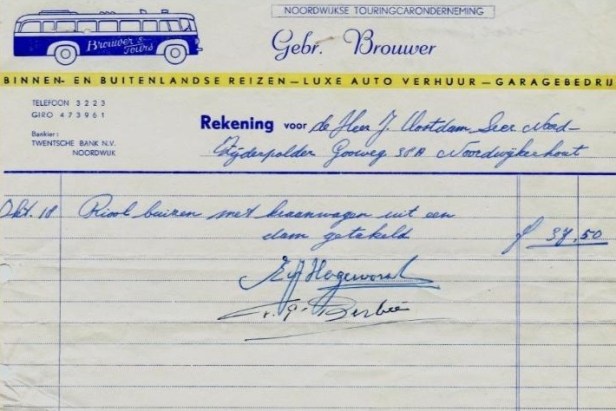 NOORDWIJKSE TOURINGCARONDERNEMING
Brouwer's Tours
Gebr. Brouwer
BINNEN- EN BUITENLANDSE REIZEN — LUXE AUTO VERHUUR — GARAGEBEDRIJ
TELEFOON 3223
GIRO 473961
Bankier:
TWENTSCHE BANK N.V.
NOORDWIJK
Rekening voor de Heer J. Oostdam Leer Noord-
Zijderpolder Gooweg 38A Noordwijkerhout
Okt. 18 Riool buizen met kraanwagen uit een
dam getakeld f 37,50